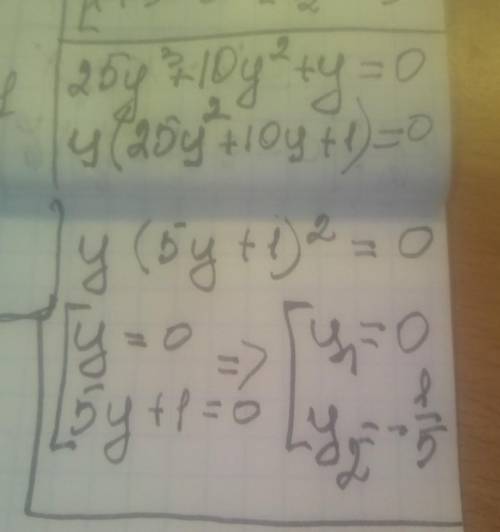 25y³+10y²+y=0
y(25y²+10y+1)=0
y(5y+1)²=0
[y=0 => [y₁=0
5y+1=0 y₂=-1/5